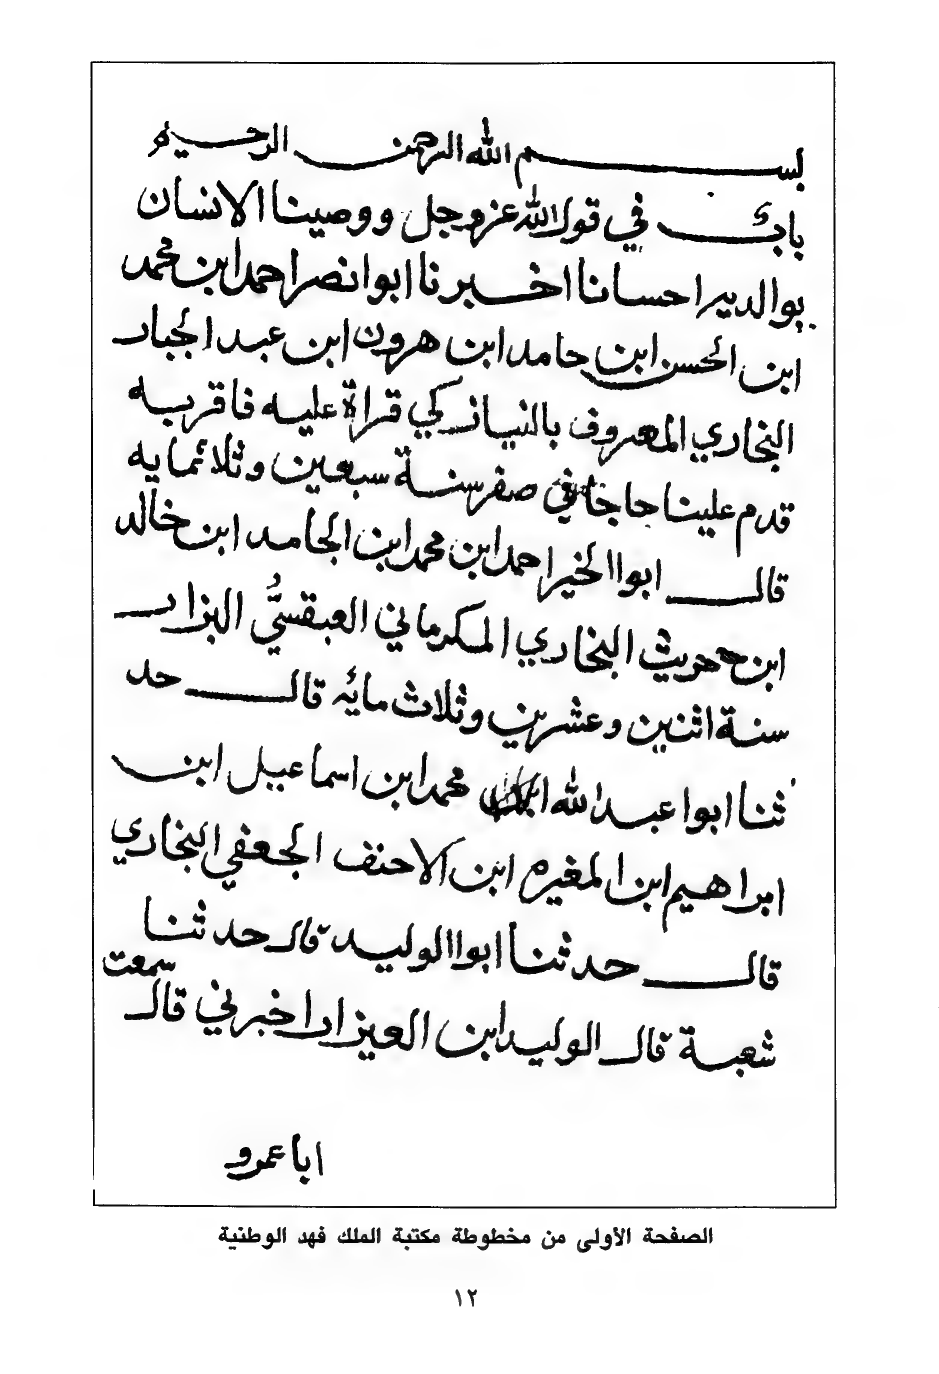 بسم الله الرحمن الرحيم
باب في قول الله عز وجل ووصينا الانسان
بوالديه احسانا اخبرنا ابوا نصر احمد ابن محمد
ابن الحسن ابن حامد ابن هرون ابن عبد الجبار
البخاري المعروف بالنيازكي قراة عليه فاقر به
قدم علينا حاجا في صفر سنة سبعين وثلاثمايه
قال ابوا الخير احمد ابن محمد ابن الجامد ابن خالد
ابن حريث البخاري الكرماني العبقسي البزار
سنة اثنين وعشرين وثلاث مائه قال حد
ثنا ابوا عبد الله محمد ابن اسماعيل ابن
ابراهيم ابن المغيره ابن الاحنف الجعفي البخاري
قال حدثنا ابوا الوليد قال حدثنا
شعبة قال الوليد ابن العيزار اخبرني قال سمعت
ابا عمرو
الصفحة الأولى من مخطوطة مكتبة الملك فهد الوطنية
١٢